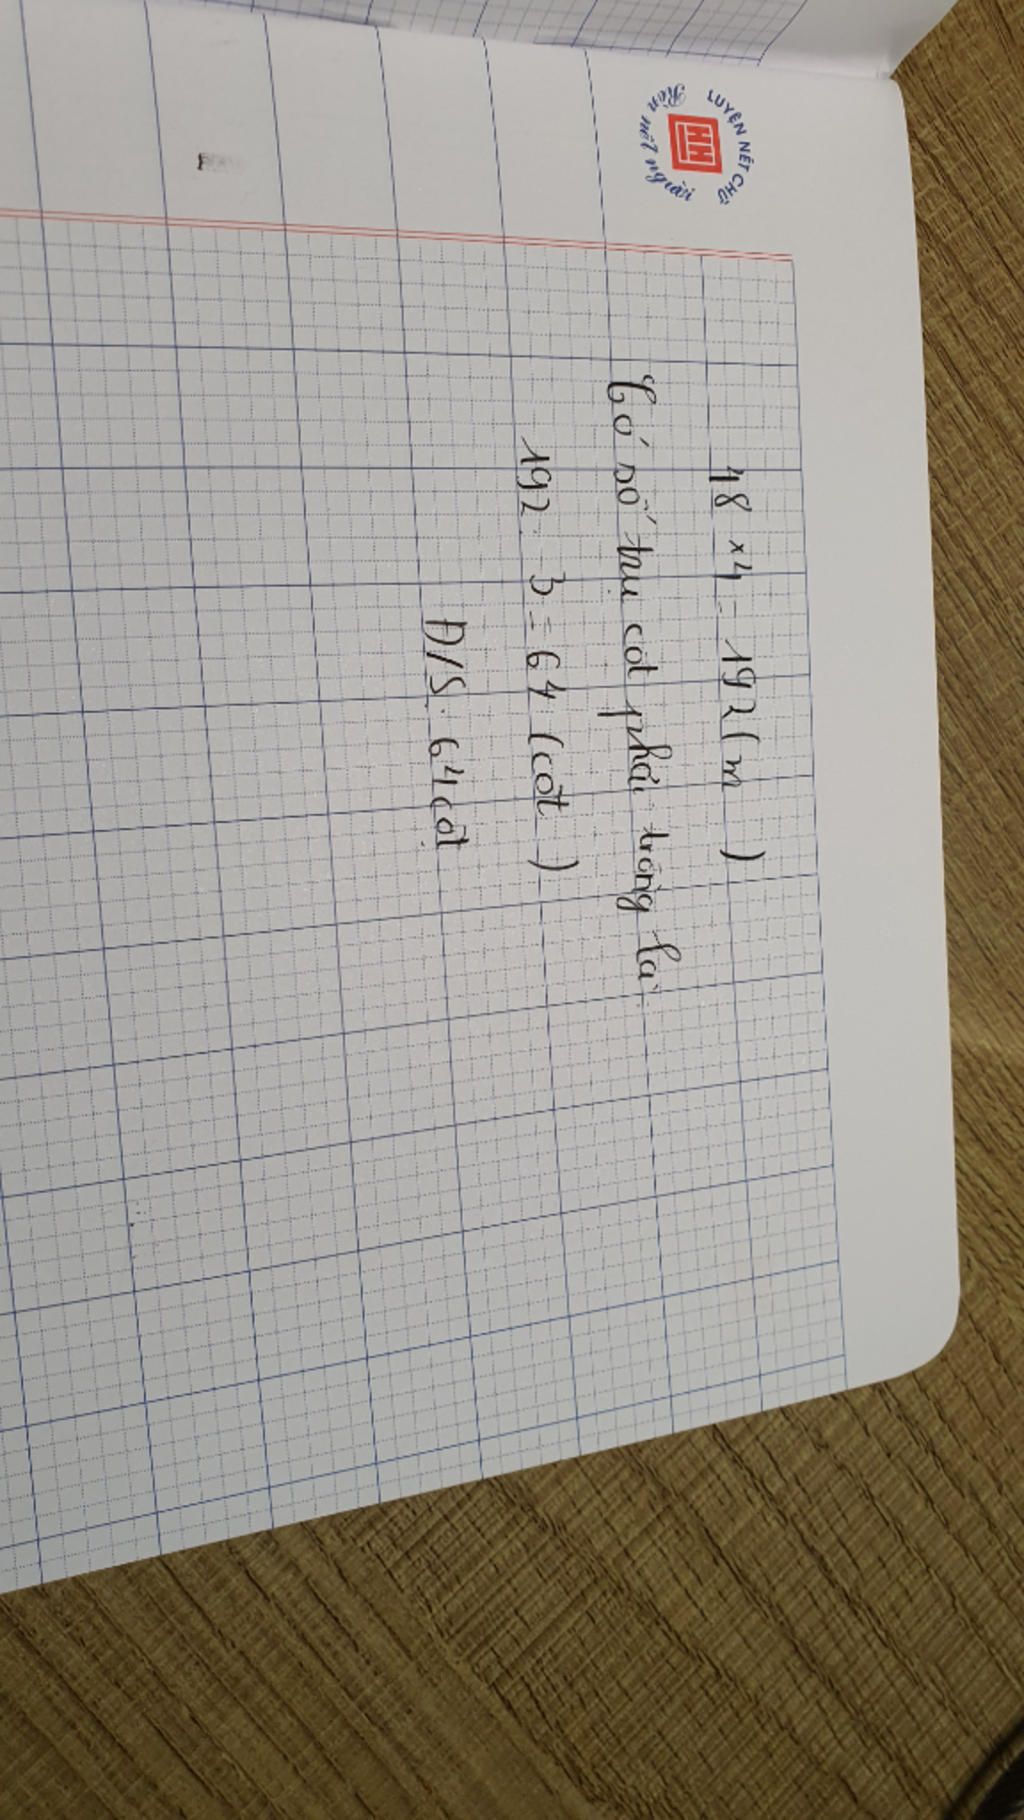 LUYỆN NÉT CHỮ
Rèn nết người
HH
48 x 4 = 192 (m)
Có số trụ cột phải trồng là
192 : 3 = 64 (cột)
Đ/S: 64 cột